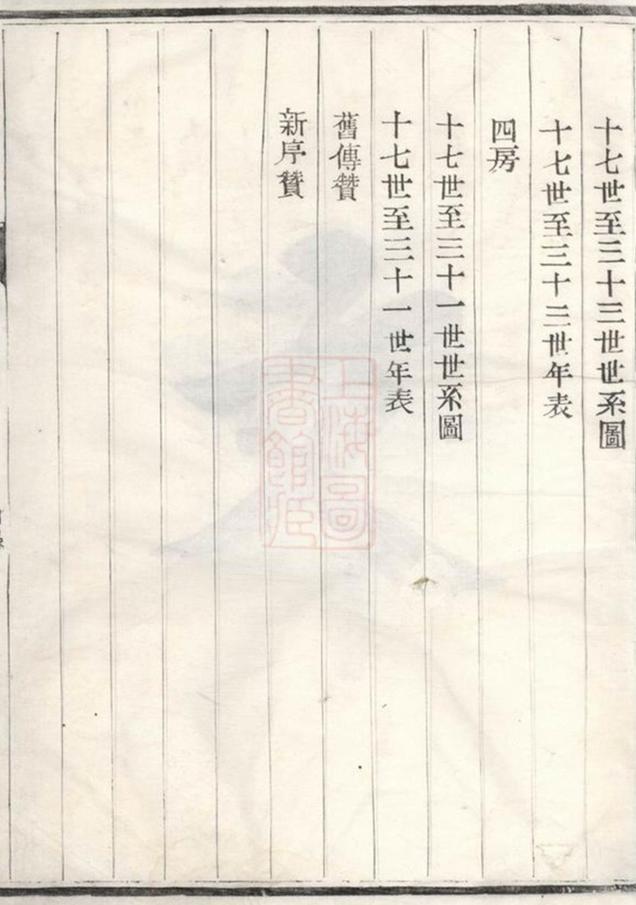 十七世至三十三世世系圖
十七世至三十三世年表
四房
十七世至三十一世世系圖
十七世至三十一世年表
舊傳贊
新序贊
上海圖
書館藏